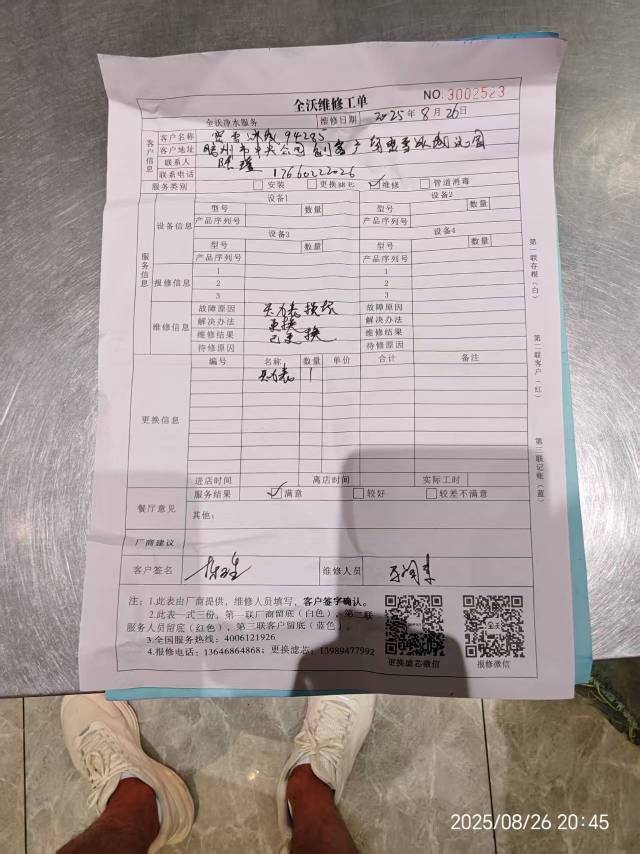 全沃维修工单
NO. 3002523
全沃净水服务 维修日期 2025年8月26日
客户信息
客户名称 蜜雪冰城94285
客户地址 胶州市中央公园
联系人
联系电话 17660222026
服务类别 安装 更换滤芯 维修 管道消毒
服务信息
设备信息
设备1 设备2
型号 数量 型号 数量
产品序列号 产品序列号
设备3 设备4
型号 数量 型号 数量
产品序列号 产品序列号
报修信息
1 1
2 2
3 3
维修信息
故障原因 压力表损坏 故障原因
解决办法 更换 解决办法
维修结果 已更换 维修结果
待修原因 待修原因
更换信息
编号 名称 数量 单价 合计 备注
压力表 1
进店时间 离店时间 实际工时
餐厅意见
服务结果 满意 较好 较差不满意
其他：
厂商建议
客户签名 维修人员
注：1.此表由厂商提供，维修人员填写，客户签字确认。
2.此表一式三份，第一联厂商留底（白色）、第二联
服务人员留底（红色）、第三联客户留底（蓝色）。
3.全国服务热线：4006121926
4.报修电话：13646864868；更换滤芯：13989477992
更换滤芯微信 报修微信
第一联存根（白）
第二联客户（红）
第三联记账（蓝）
2025/08/26 20:45